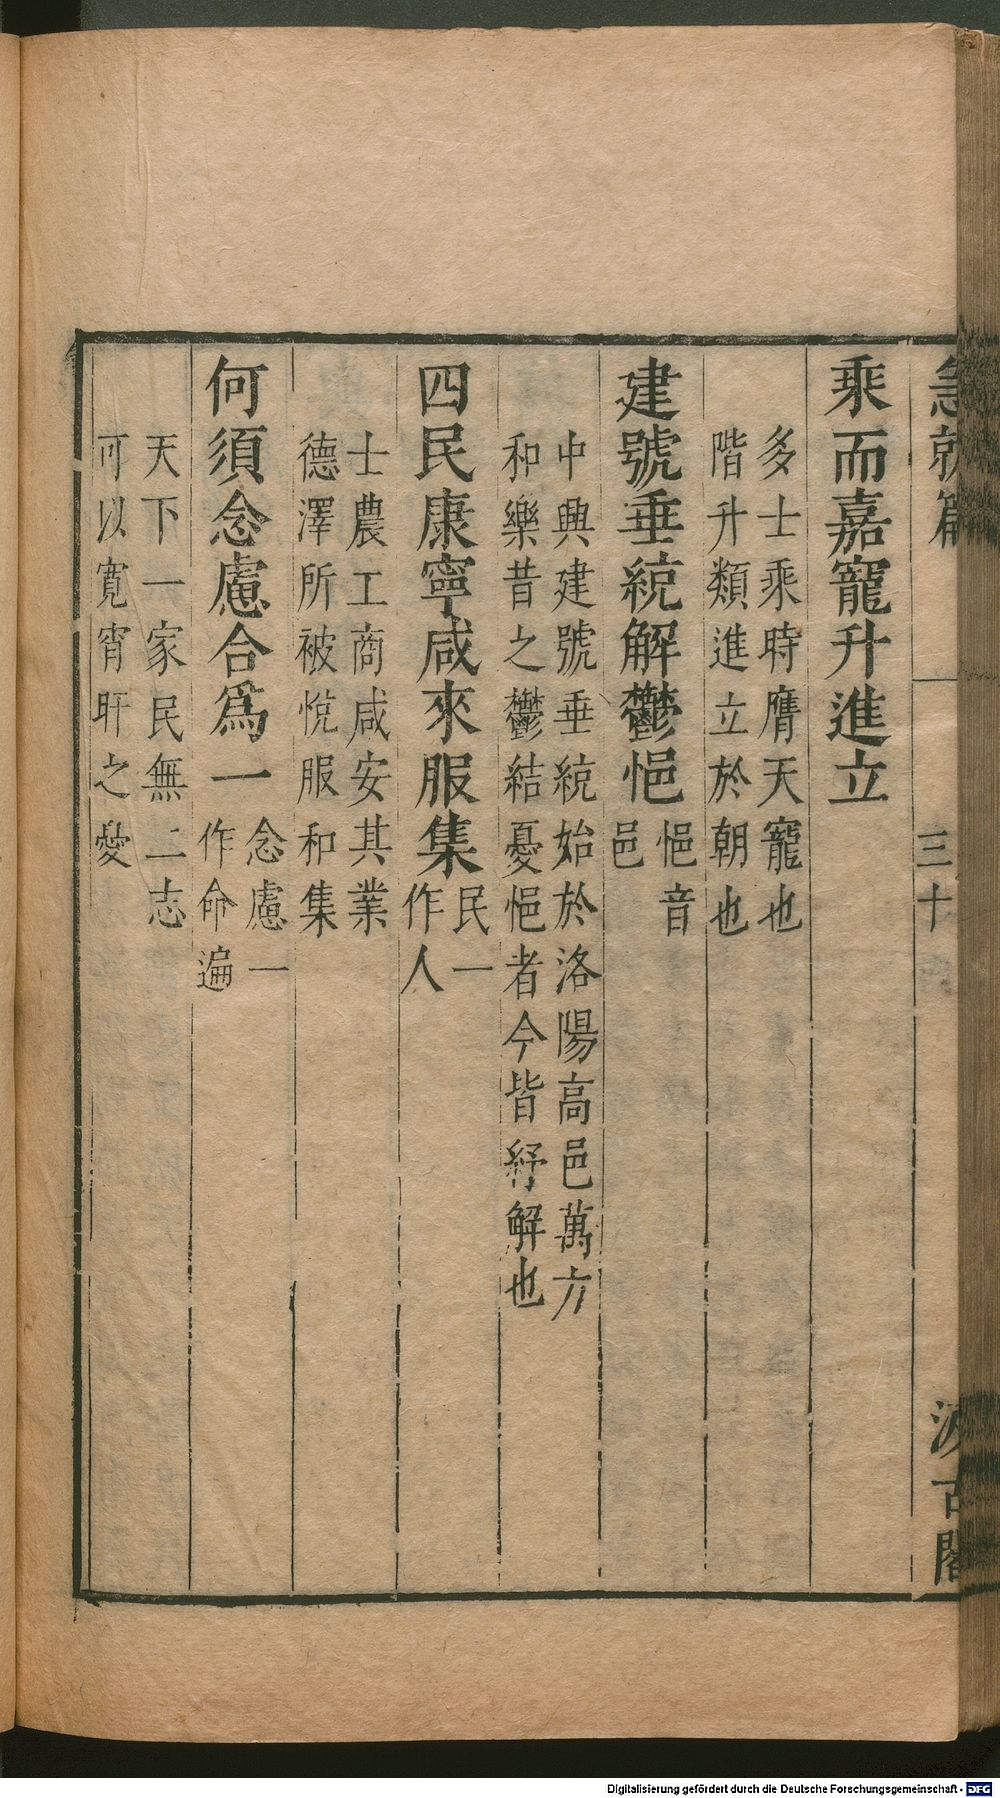 急就篇
三十
汲古閣
乘而嘉寵升進立
多士乘時膺天寵也
階升類進立於朝也
建號垂統解鬱悒
悒音
邑
中興建號垂統始於洛陽高邑萬方
和樂昔之鬱結憂悒者今皆紓解也
四民康寧咸來服集
民一
作人
士農工商咸安其業
德澤所被悅服和集
何須念慮合爲一
念慮一
作命遍
天下一家民無二志
可以寬宵旰之憂
Digitalisierung gefördert durch die Deutsche Forschungsgemeinschaft - DFG